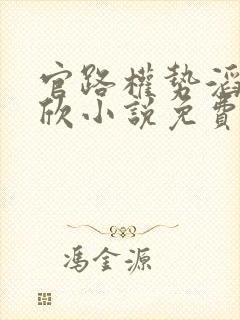 官路權勢滔
欣小說免費
馮金源